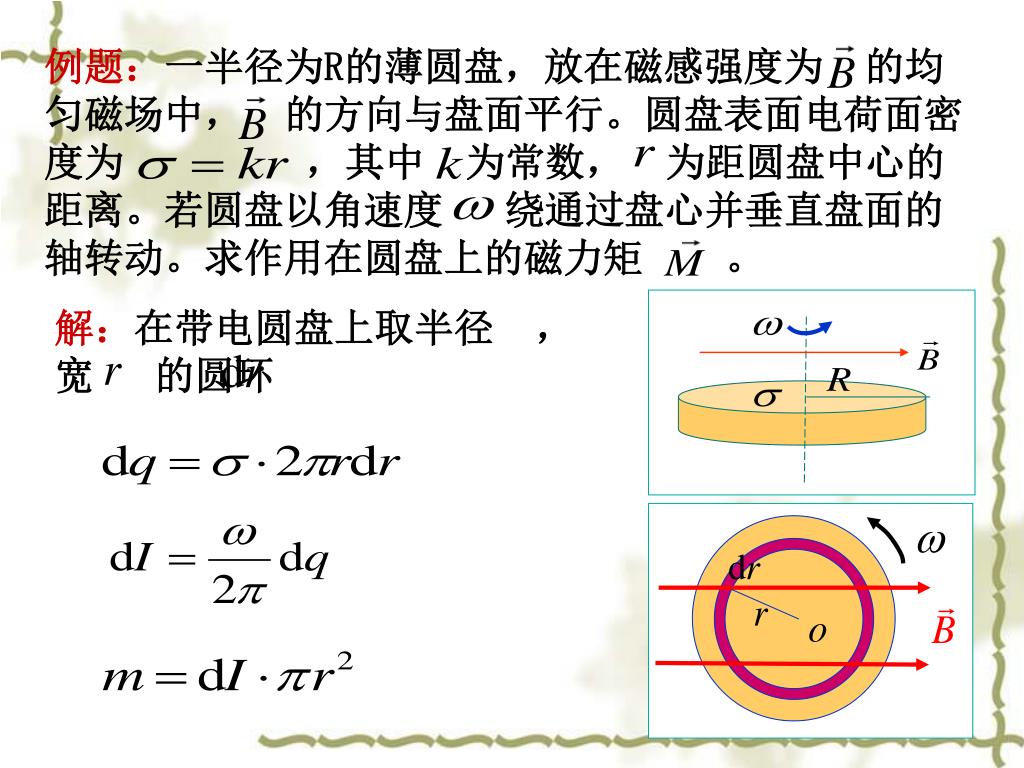 例题：一半径为R的薄圆盘，放在磁感强度为 $\vec{B}$ 的均
匀磁场中， $\vec{B}$ 的方向与盘面平行。圆盘表面电荷面密
度为 σ = kr ，其中 k 为常数， r 为距圆盘中心的
距离。若圆盘以角速度 ω 绕通过盘心并垂直盘面的
轴转动。求作用在圆盘上的磁力矩 $\vec{M}$ 。
解：在带电圆盘上取半径 ，
宽 r 的圆环 dr
$dq = σ \cdot 2πrdr$
$dI = \frac{ω}{2π} dq$
$m = dI \cdot πr^2$
ω
$\vec{B}$
R
σ
ω
dr
r
o
$\vec{B}$